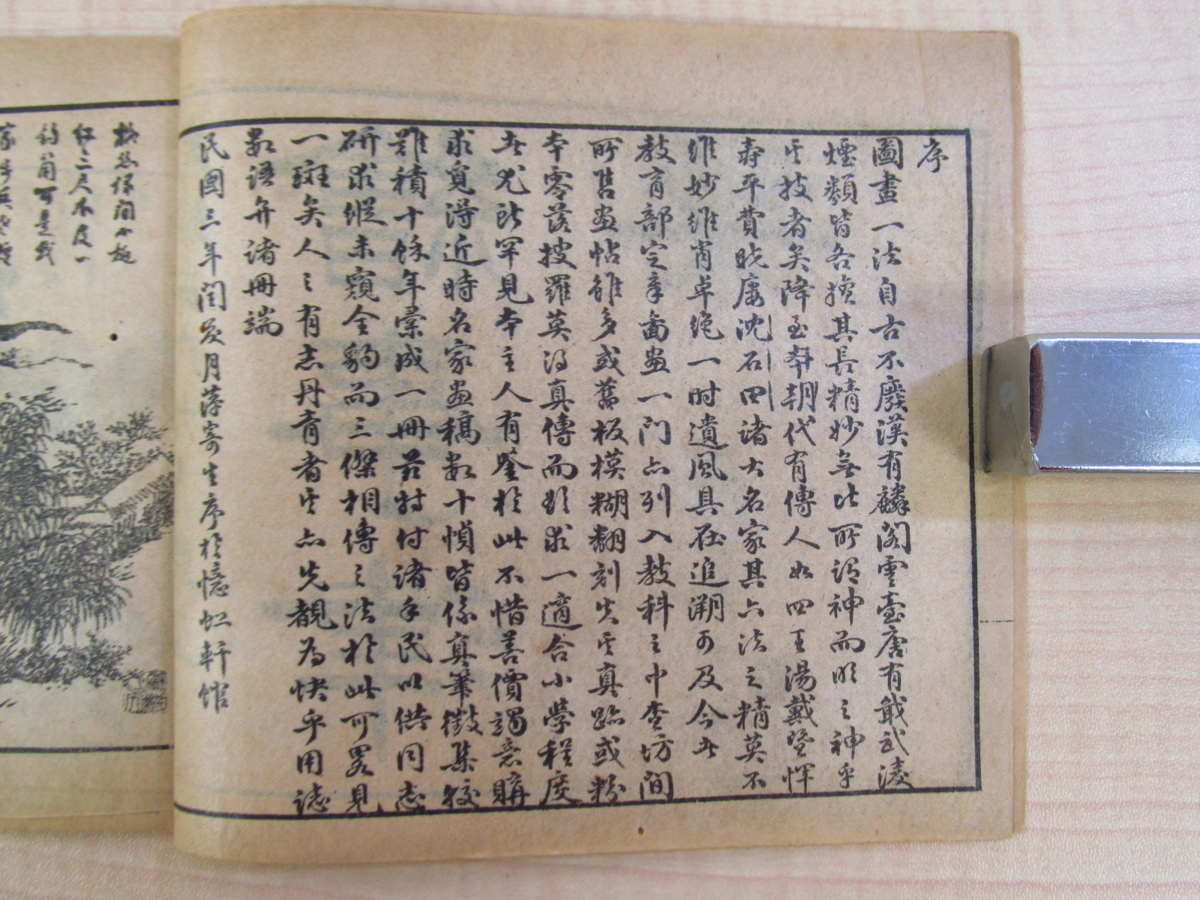 序
圖畫一法自古不廢漢有麟閣雲臺唐有戢武凌
煙類皆各擅其長精妙無比所謂神而明之神乎
其技者矣降至本朝代有傳人如四王湯戴暨惲
壽平費曉廔沈石田諸大名家其六法之精莫不
維妙維肖卓絕一時遺風具在追溯可及今者
教育部定章圖畫一門亦列入教科之中查坊間
所售畫帖雖多或舊板模糊翻刻失其真跡或粉
本零落搜羅莫得真傳而欲求一適合小學程度
者尤所罕見本主人有鑒於此不惜善價竭意購
求覓得近時名家畫稿數十幀皆係真筆徵集較
難積十餘年彙成一冊茲特付諸手民以供同志
研求縱未窺全豹而三傑相傳之法於此可畧見
一斑矣人之有志丹青者其亦先覩為快乎用誌
數語弁諸冊端
民國三年閏夏月萍寄生序於憶虹軒館